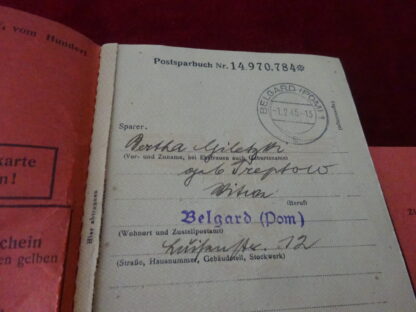 , vom Hundert
karte
n!
schein
en gelben
Hier abtrennen
Postsparbuch Nr. 14.970.784*
BELGARD (POM) 1
1.2.45.-15
c
Sparer.
Bertha Giletzki
(Vor- und Zuname, bei Ehefrauen auch Geburtsname)
geb Treptow
Witwe
(Beruf)
Belgard (Pom)
(Wohnort und Zustellpostamt)
Luisenstr. 12
(Straße, Hausnummer, Gebäudeteil, Stockwerk)